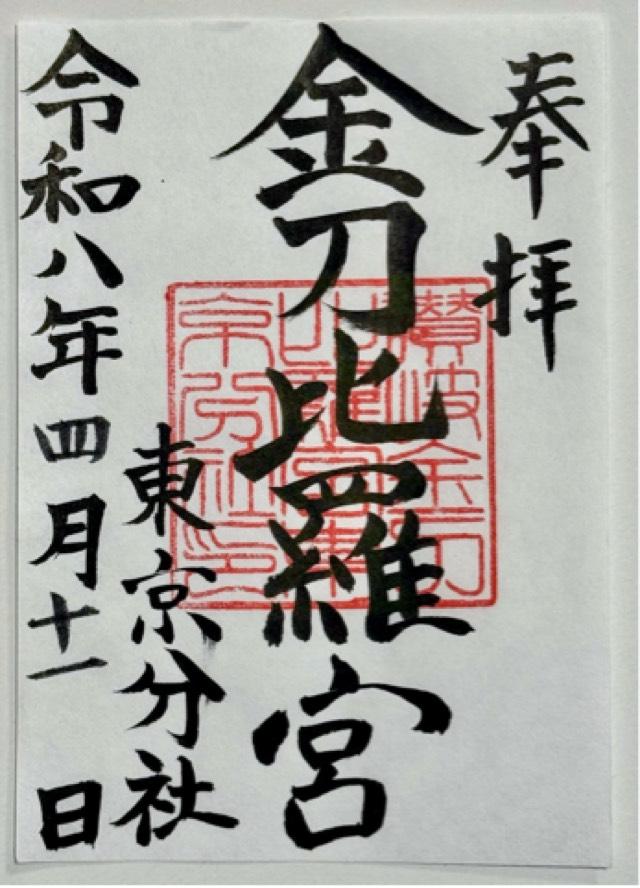 奉拝
金刀比羅宮
東京分社
令和八年四月十一日